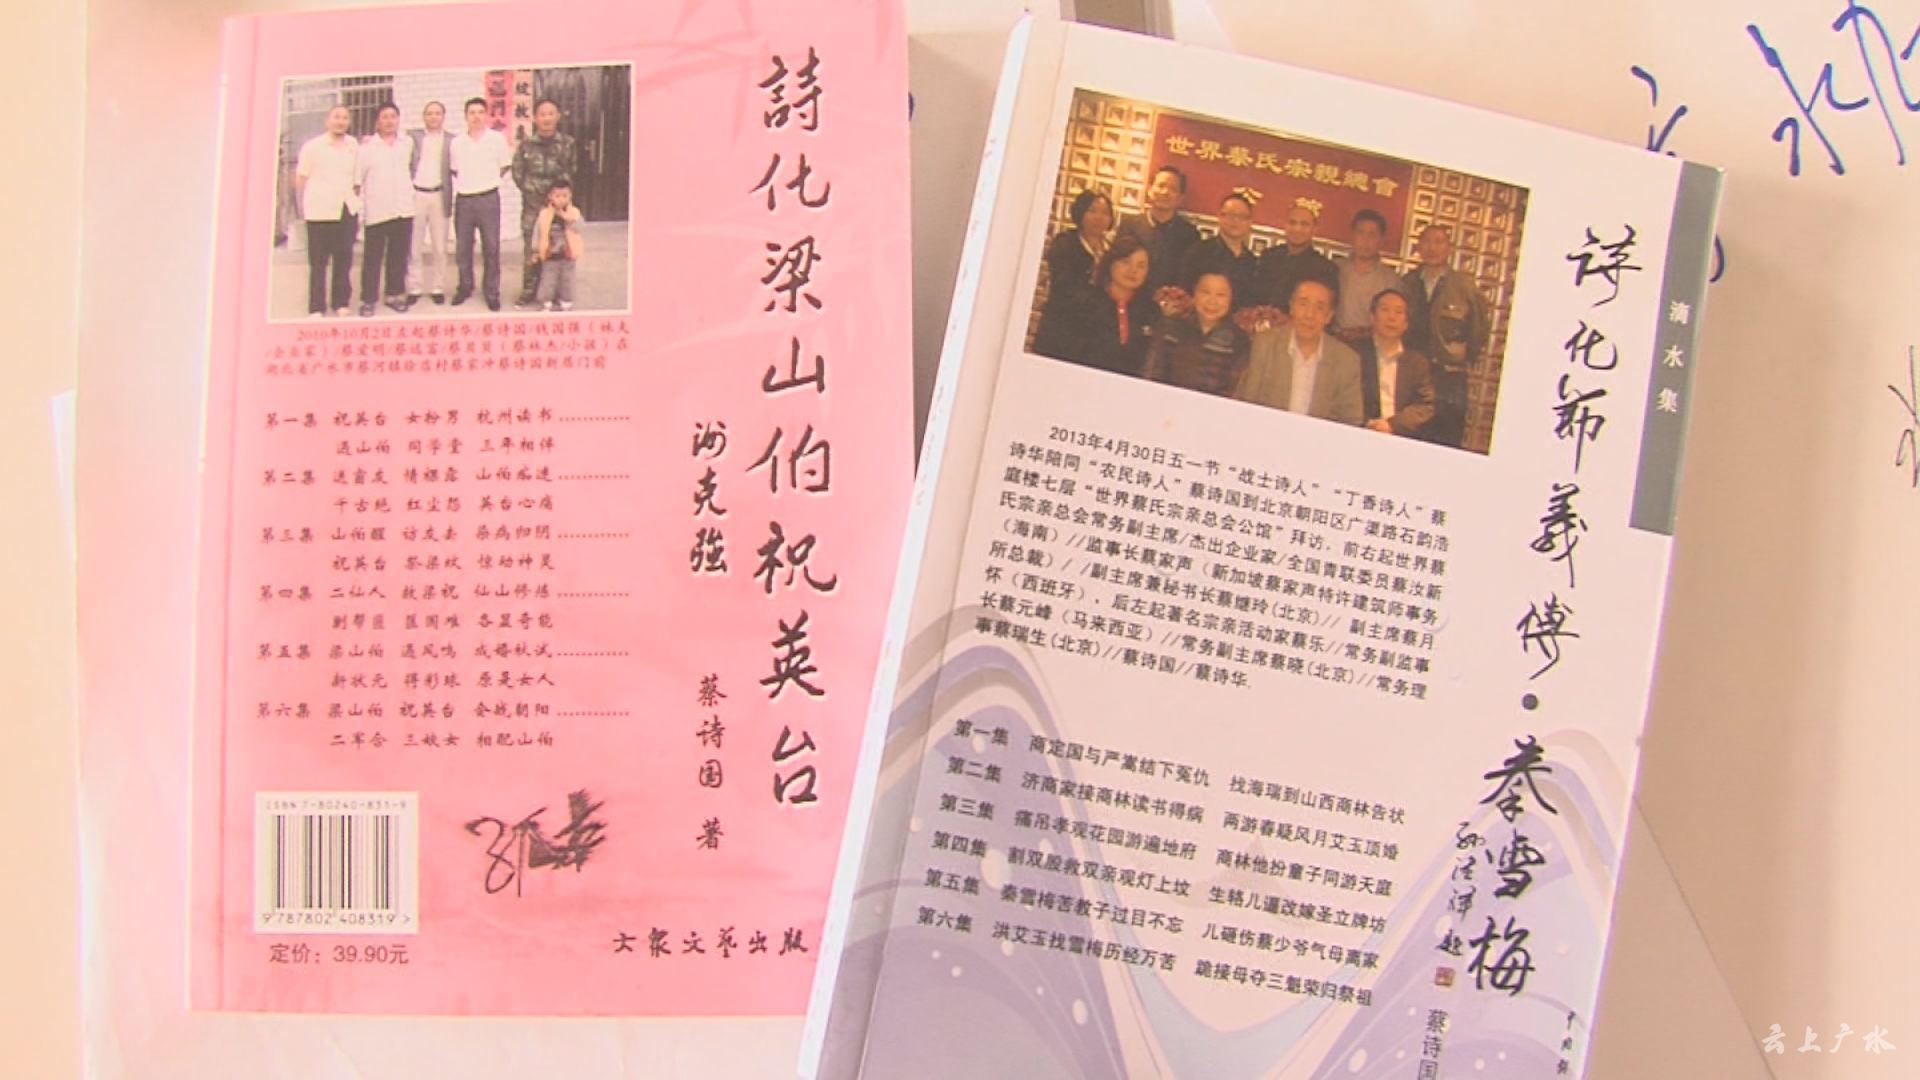 詩化梁山伯祝英台
2010年10月2日左起蔡诗华/蔡诗国/钱国强（林夫
/企业家）/蔡爱明/蔡远富/蔡贝贝（蔡林杰/小孩）在
湖北省广水市蔡河镇徐店村蔡家冲蔡诗国新居门前
第一集 祝英台 女扮男 杭州读书…………
遇山伯 同学堂 三年相伴
第二集 送窗友 情裸露 山伯痴迷…………
千古绝 红尘怨 英台心痛
第三集 山伯醒 访友去 染病归阴…………
祝英台 祭梁坟 惊动神灵
第四集 二仙人 救梁祝 仙山修炼…………
剿帮匪 匡国难 各显奇能
第五集 梁山伯 遇凤鸣 成婚秋试…………
新状元 得彩球 原是女人
第六集 梁山伯 祝英台 会战朝阳…………
二军合 三妓女 相配山伯
蔡诗国 著
ISBN 7-80240-831-9
9 787802 408319 >
定价：39.90元
大众文艺出版
世界蔡氏宗親總會
公館
滴水集
诗化节義傳·秦雪梅
2013年4月30日五一节“战士诗人”“丁香诗人”蔡
诗华陪同“农民诗人”蔡诗国到北京朝阳区广渠路石韵浩
庭楼七层“世界蔡氏宗亲总会公馆”拜访，前右起世界蔡
氏宗亲总会常务副主席/杰出企业家/全国青联委员蔡汝新
（海南）//监事长蔡家声（新加坡蔡家声特许建筑师事务
所总裁）//副主席兼秘书长蔡继玲(北京)// 副主席蔡月
怀（西班牙），后左起著名宗亲活动家蔡乐//常务副监事
长蔡元峰（马来西亚）//常务副主席蔡晓(北京)//常务理
事蔡瑞生(北京)//蔡诗国//蔡诗华.
第一集 商定国与严嵩结下冤仇 找海瑞到山西商林告状
第二集 济商家接商林读书得病 两游春疑风月艾玉顶婚
第三集 痛吊孝观花园游遍地府 商林他扮童子同游天庭
第四集 割双股救双亲观灯上坟 生辂儿逼改嫁圣立牌坊
第五集 秦雪梅苦教子过目不忘 儿砸伤蔡少爷气母离家
第六集 洪艾玉找雪梅历经万苦 跪接母夺三魁荣归祭祖
蔡诗国
云上广水